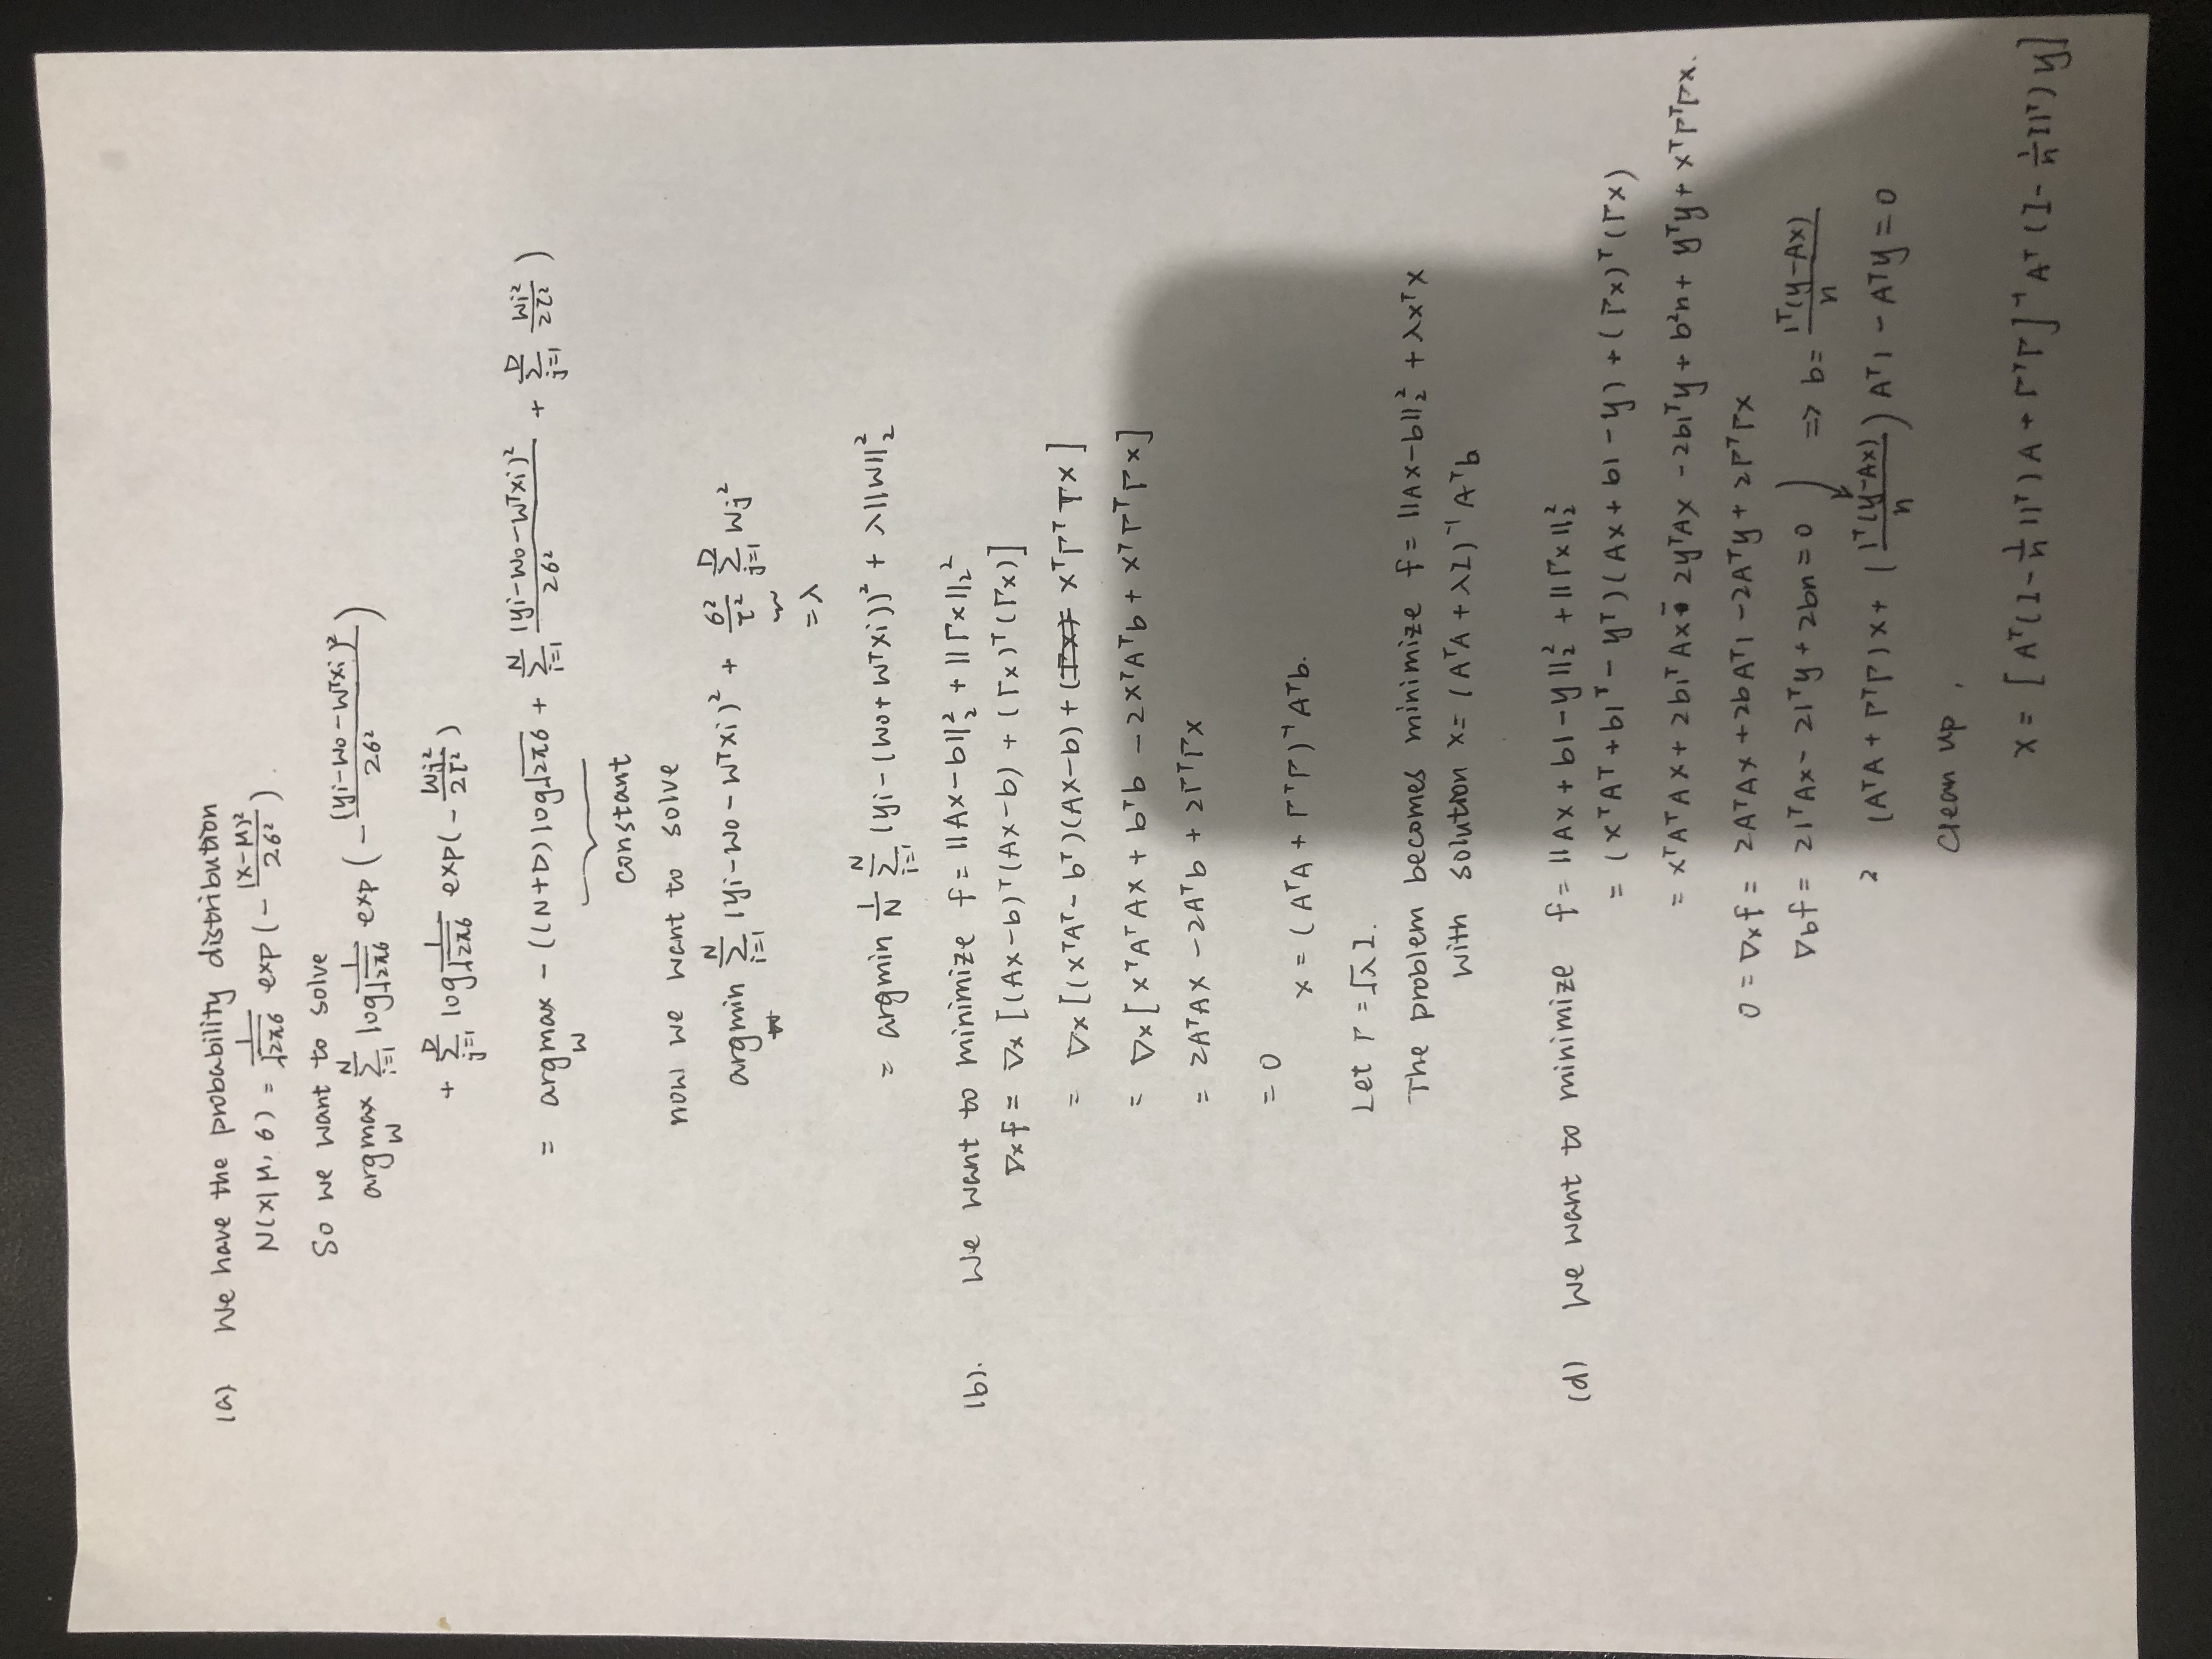 (a) We have the probability distribution
N(x|μ, σ) = 1/√2πσ exp(-(x-μ)²/2σ²).
So we want to solve
argmax_w Σ_{i=1}^N log 1/√2πσ exp(-(yi-w0-wᵀxi)²/2σ²)
+ Σ_{j=1}^D log 1/√2πσ exp(-wj²/2τ²)
= argmax_w -((N+D)log√2πσ + Σ_{i=1}^N (yi-w0-wᵀxi)²/2σ² + Σ_{j=1}^D wj²/2τ²)
constant
now we want to solve
argmin_w Σ_{i=1}^N (yi-w0-wᵀxi)² + σ²/τ² Σ_{j=1}^D wj²
=λ
= argmin 1/N Σ_{i=1}^N (yi-(w0+wᵀxi))² + λ||w||₂²
(b). We want to minimize f = ||Ax-b||₂² + ||Γx||₂²
∇xf = ∇x[(Ax-b)ᵀ(Ax-b) + (Γx)ᵀ(Γx)]
= ∇x[(xᵀAᵀ-bᵀ)(Ax-b)+( xᵀΓᵀΓx]
= ∇x[xᵀAᵀAx + bᵀb - 2xᵀAᵀb + xᵀΓᵀΓx]
= 2AᵀAx - 2Aᵀb + 2ΓᵀΓx
= 0
x = (AᵀA + ΓᵀΓ)⁻¹Aᵀb.
Let Γ = √λ I.
The problem becomes minimize f = ||Ax-b||₂² + λxᵀx
with solution x = (AᵀA + λI)⁻¹Aᵀb
(d) We want to minimize f = ||Ax + b1 - y||₂² + ||Γx||₂²
= (xᵀAᵀ + b1ᵀ - yᵀ)(Ax + b1 - y) + (Γx)ᵀ(Γx)
= xᵀAᵀAx + 2b1ᵀAx - 2yᵀAx - 2b1ᵀy + b²n + yᵀy + xᵀΓᵀΓx.
0 = ∇xf = 2AᵀAx + 2bAᵀ1 - 2Aᵀy + 2ΓᵀΓx
∇bf = 21ᵀAx - 21ᵀy + 2bn = 0 ⇒ b = 1ᵀ(y-Ax)/n
2 (AᵀA + ΓᵀΓ)x + (1ᵀ(y-Ax)/n) Aᵀ1 - Aᵀy = 0
clean up,
x = [Aᵀ(I - 1/n 11ᵀ)A + ΓᵀΓ]⁻¹Aᵀ(I - 1/n 11ᵀ)y]